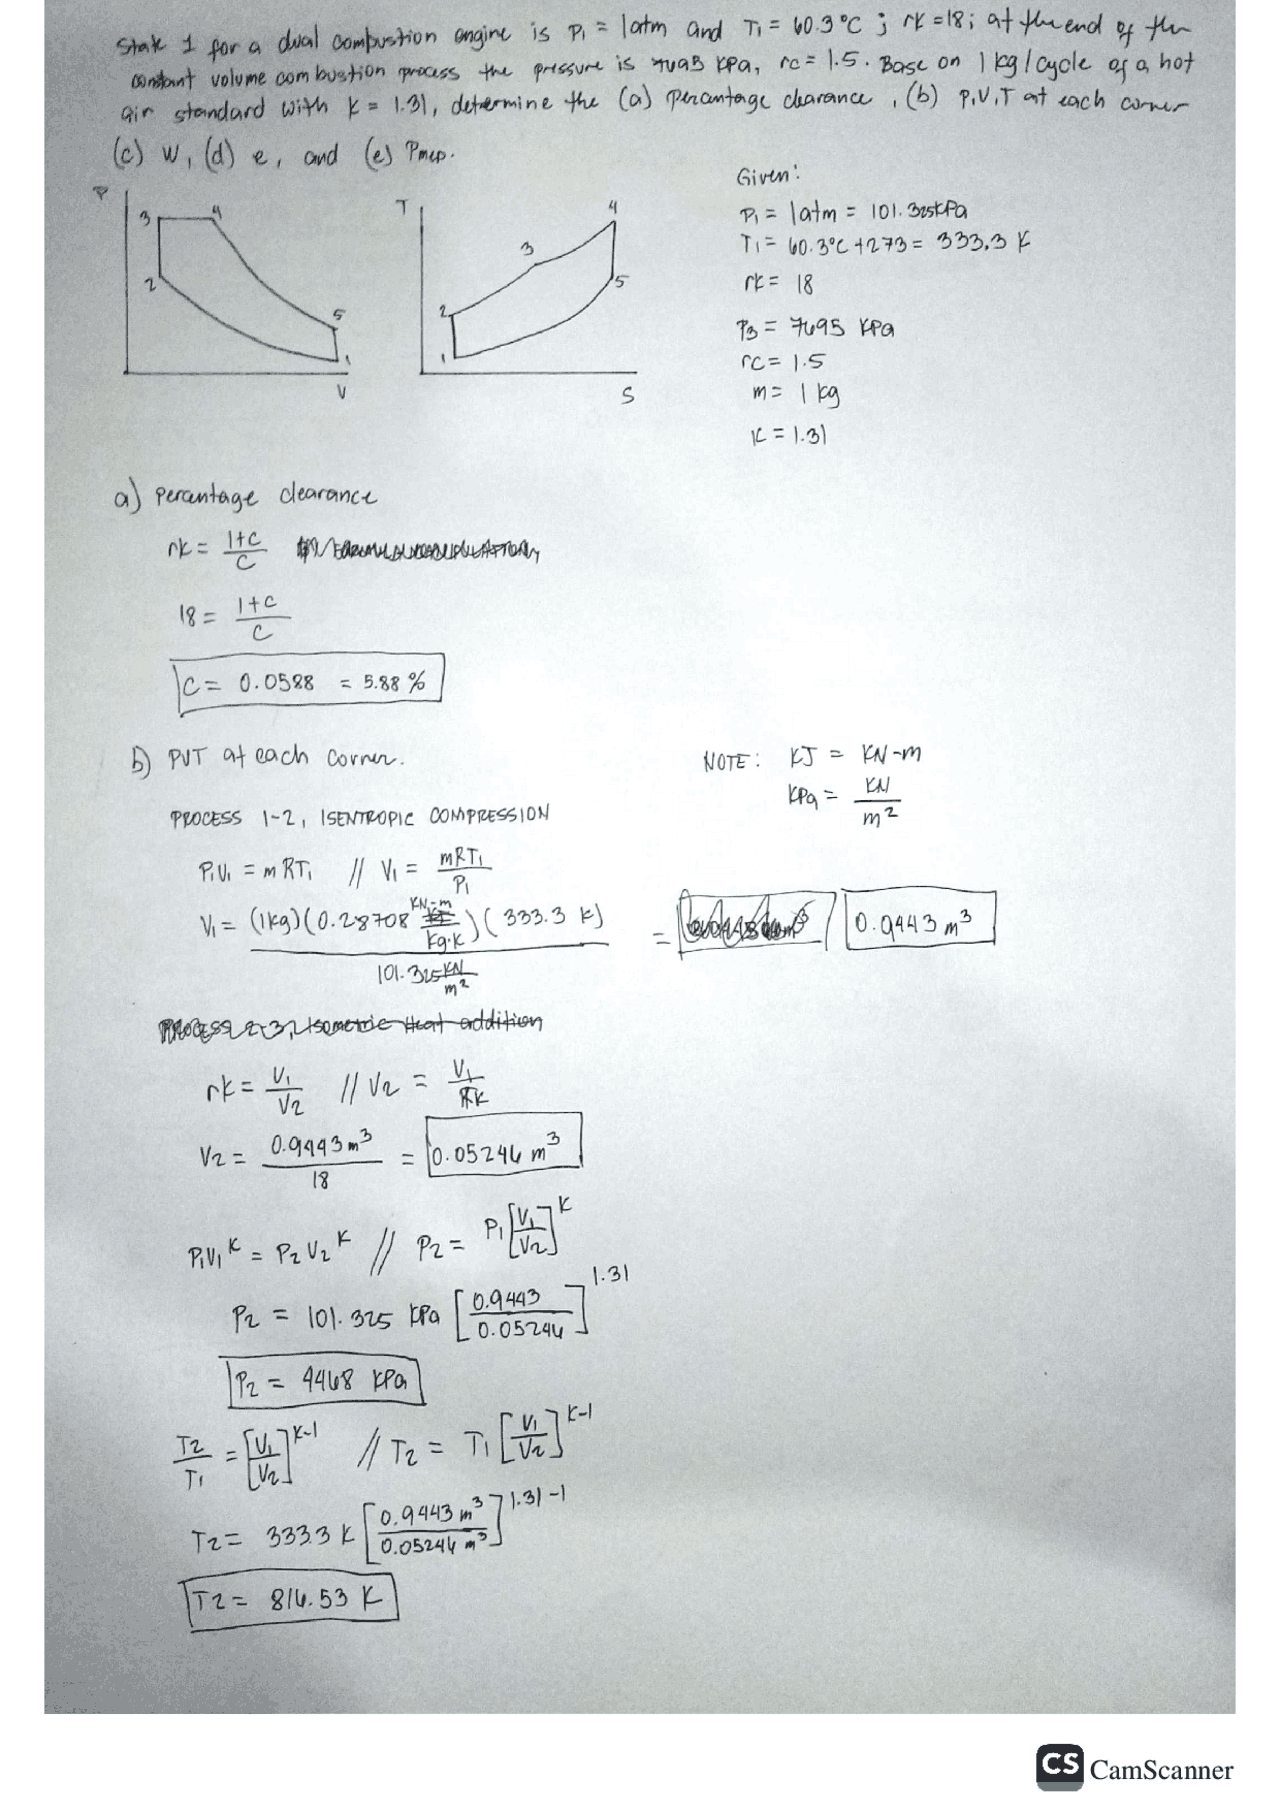 State 1 for a dual combustion engine is P1 = 1atm and T1 = 60.3°C ; rk = 18; at the end of the
constant volume combustion process the pressure is 7695 KPa, rc = 1.5. Base on 1 kg/cycle of a hot
air standard with K = 1.31, determine the (a) percentage clearance, (b) P,V,T at each corner
(c) W, (d) e, and (e) Pmep.
P
3
4
2
5
1
V
T
4
3
2
5
1
S
Given:
P1 = 1atm = 101.325KPa
T1 = 60.3°C + 273 = 333.3 K
rK = 18
P3 = 7695 KPa
rc = 1.5
m = 1 kg
K = 1.31
a) percentage clearance
rK = 1+C / C
18 = 1+C / C
C = 0.0588 = 5.88 %
b) PVT at each corner.
NOTE: KJ = KN-m
KPa = KN / m²
PROCESS 1-2, ISENTROPIC COMPRESSION
P1V1 = mRT1 // V1 = mRT1 / P1
V1 = (1kg)(0.28708 KN-m / kg·K)(333.3 K) / 101.325 KN/m² = 0.9443 m³
PROCESS 2-3, Isometric Heat addition
rK = V1 / V2 // V2 = V1 / rK
V2 = 0.9443 m³ / 18 = 0.05246 m³
P1V1^K = P2V2^K // P2 = P1 [V1 / V2]^K
P2 = 101.325 KPa [0.9443 / 0.05246]^1.31
P2 = 4468 KPa
T2 / T1 = [V1 / V2]^K-1 // T2 = T1 [V1 / V2]^K-1
T2 = 333.3 K [0.9443 m³ / 0.05246 m³]^1.31-1
T2 = 816.53 K
CS CamScanner